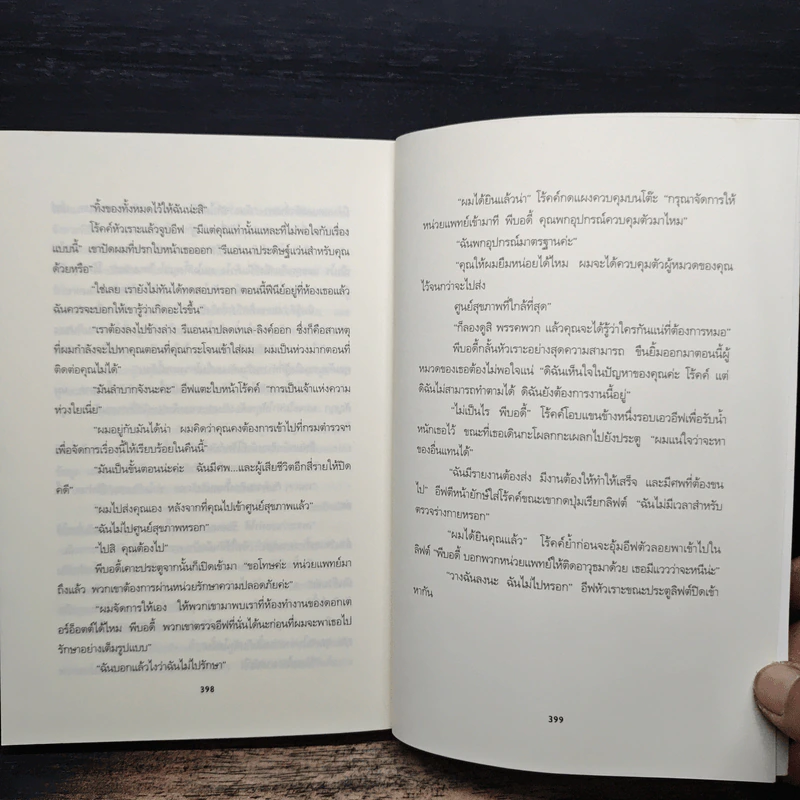 "ทิ้งของทั้งหมดไว้ให้ฉันน่ะสิ"
โร้คค์หัวเราะแล้วจูบอีฟ "มีแต่คุณเท่านั้นแหละที่ไม่พอใจกับเรื่อง
แบบนี้" เขาปัดผมที่ปรกใบหน้าเธอออก "รีแอนนาประดิษฐ์แว่นสำหรับคุณ
ด้วยหรือ"
"ใช่เลย เรายังไม่ทันได้ทดสอบหรอก ตอนนี้ฟีนีย์อยู่ที่ห้องเธอแล้ว
ฉันควรจะบอกให้เขารู้ว่าเกิดอะไรขึ้น"
"เราต้องลงไปข้างล่าง รีแอนนาปลดเทเล-ลิงค์ออก ซึ่งก็คือสาเหตุ
ที่ผมกำลังจะไปหาคุณตอนที่คุณกระโจนเข้าใส่ผม ผมเป็นห่วงมากตอนที่
ติดต่อคุณไม่ได้"
"มันลำบากจังนะคะ" อีฟแตะใบหน้าโร้คค์ "การเป็นเจ้าแห่งความ
ห่วงใยเนี่ย"
"ผมอยู่กับมันได้น่า ผมคิดว่าคุณคงต้องการเข้าไปที่กรมตำรวจฯ
เพื่อจัดการเรื่องนี้ให้เรียบร้อยในคืนนี้"
"มันเป็นขั้นตอนน่ะค่ะ ฉันมีศพ...และผู้เสียชีวิตอีกสี่รายให้ปิด
คดี"
"ผมไปส่งคุณเอง หลังจากที่คุณไปเข้าศูนย์สุขภาพแล้ว"
"ฉันไม่ไปศูนย์สุขภาพหรอก"
"ไปสิ คุณต้องไป"
พีบอดี้เคาะประตูจากนั้นก็เปิดเข้ามา "ขอโทษค่ะ หน่วยแพทย์มา
ถึงแล้ว พวกเขาต้องการผ่านหน่วยรักษาความปลอดภัยค่ะ"
"ผมจัดการให้เอง ให้พวกเขามาพบเราที่ห้องทำงานของดอกเต
อร์อ็อตต์ได้ไหม พีบอดี้ พวกเขาตรวจอีฟที่นั่นได้นะก่อนที่ผมจะพาเธอไป
รักษาอย่างเต็มรูปแบบ"
"ฉันบอกแล้วไงว่าฉันไม่ไปรักษา"
398
"ผมได้ยินแล้วน่า" โร้คค์กดแผงควบคุมบนโต๊ะ "กรุณาจัดการให้
หน่วยแพทย์เข้ามาที พีบอดี้ คุณพกอุปกรณ์ควบคุมตัวมาไหม"
"ฉันพกอุปกรณ์มาตรฐานค่ะ"
"คุณให้ผมยืมหน่อยได้ไหม ผมจะได้ควบคุมตัวผู้หมวดของคุณ
ไว้จนกว่าจะไปส่ง
ศูนย์สุขภาพที่ใกล้ที่สุด"
"ก็ลองดูสิ พรรคพวก แล้วคุณจะได้รู้ว่าใครกันแน่ที่ต้องการหมอ"
พีบอดี้กลั้นหัวเราะอย่างสุดความสามารถ ขืนยิ้มออกมาตอนนี้ผู้
หมวดของเธอต้องไม่พอใจแน่ "ดิฉันเห็นใจในปัญหาของคุณค่ะ โร้คค์ แต่
ดิฉันไม่สามารถทำตามได้ ดิฉันยังต้องการงานนี้อยู่"
"ไม่เป็นไร พีบอดี้" โร้คค์โอบแขนข้างหนึ่งรอบเอวอีฟเพื่อรับน้ำ
หนักเธอไว้ ขณะที่เธอเดินกะโผลกกะเผลกไปยังประตู "ผมแน่ใจว่าจะหา
ของอื่นแทนได้"
"ฉันมีรายงานต้องส่ง มีงานต้องให้ทำให้เสร็จ และมีศพที่ต้องขน
ไป" อีฟตีหน้ายักษ์ใส่โร้คค์ขณะเขากดปุ่มเรียกลิฟต์ "ฉันไม่มีเวลาสำหรับ
ตรวจร่างกายหรอก"
"ผมได้ยินคุณแล้ว" โร้คค์ย้ำก่อนจะอุ้มอีฟตัวลอยพาเข้าไปใน
ลิฟต์ "พีบอดี้ บอกพวกหน่วยแพทย์ให้ติดอาวุธมาด้วย เธอมีแววว่าจะหนีน่ะ"
"วางฉันลงนะ ฉันไม่ไปหรอก" อีฟหัวเราะขณะประตูลิฟต์ปิดเข้า
หากัน
399